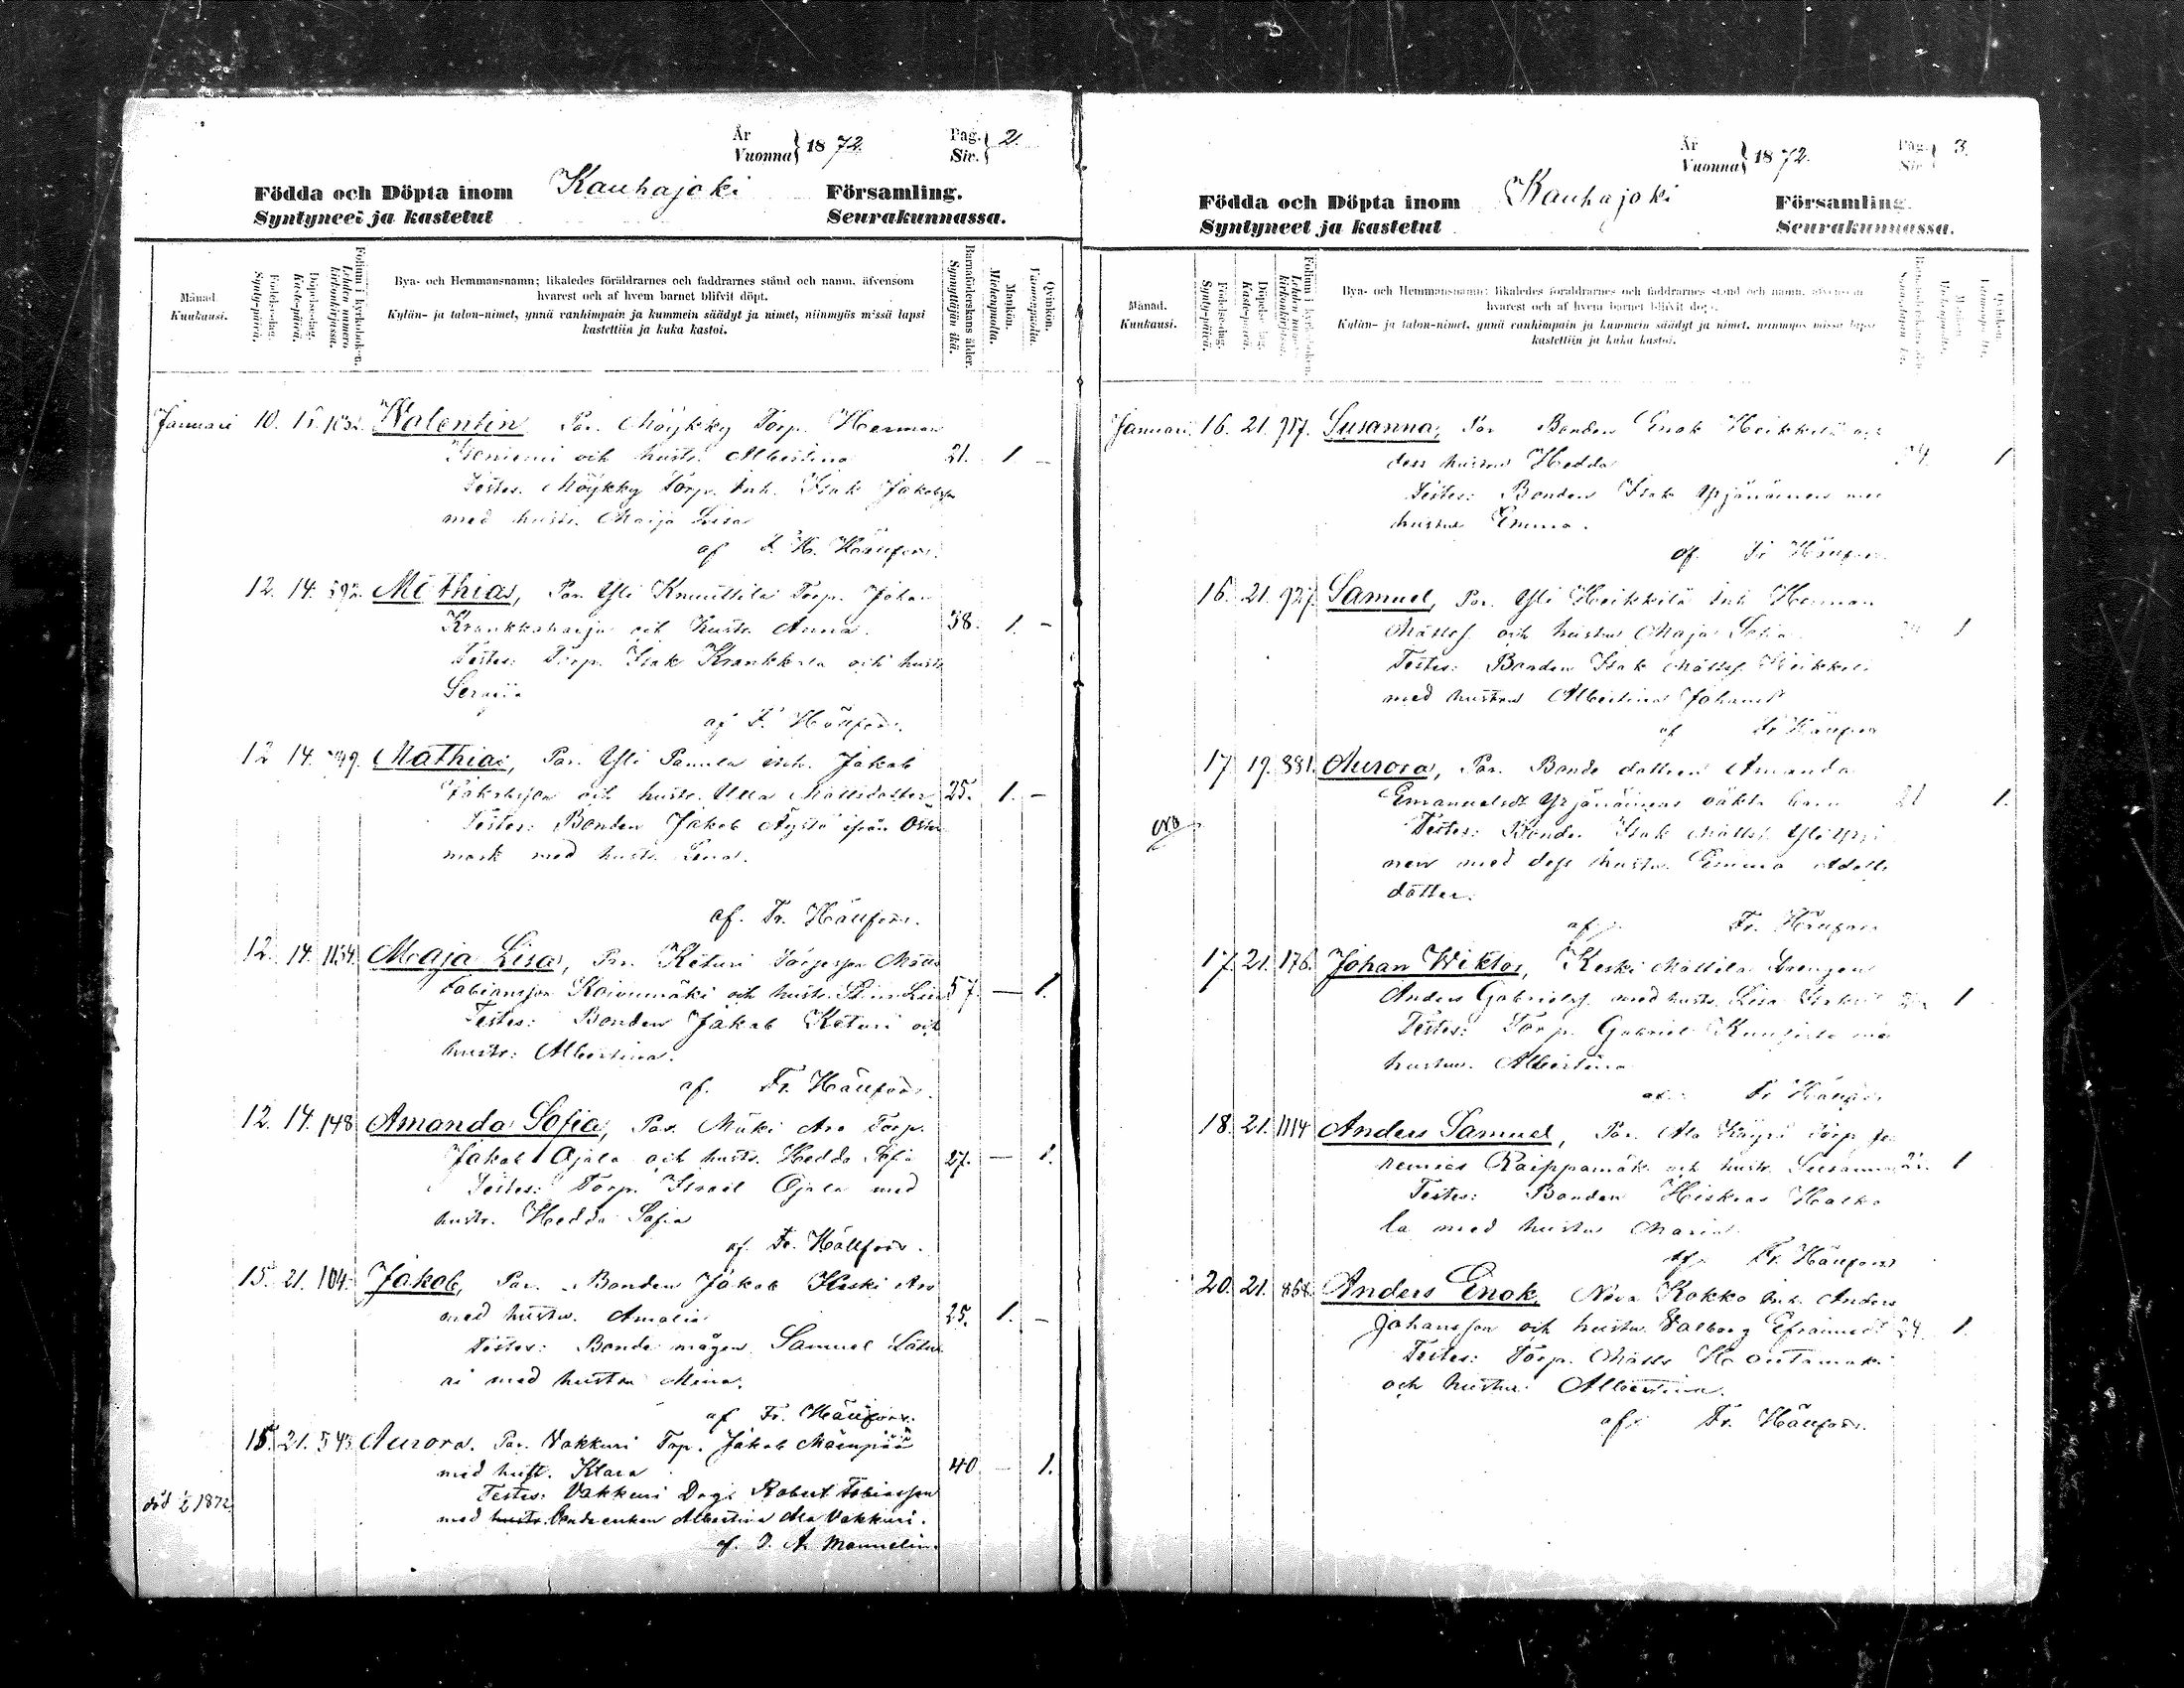 År
Vuonna } 1872. Pag. Siv. } 2.
Födda och Döpta inom Kauhajoki Församling.
Syntyneet ja kastetut Seurakunnassa.
Månad. Kuukausi.
Födelsedag. Synty-päivä.
Döpelsedag. Kaste-päivä.
Folium i kyrkobok-n. Lehden numero kirkonkirjassa.
Bya- och Hemmansnamn; likaledes föräldrarnes och faddrarnes stånd och namn, äfvensom
hvarest och af hvem barnet blifvit döpt.
Kylän- ja talon-nimet, ynnä vanhimpain ja kummein säädyt ja nimet, niinmyös missä lapsi
kastettiin ja kuka kastoi.
Barnaföderskans ålder. Synnyttäjän ikä.
Mankön. Miehenpuolia.
Qvinkön. Vaimonpuolia.
Januari 10. Walentin Par. Möykky Torp. Herman
och hustr. Albertina 21. 1 –
Testes. Möykky Torp. Inh. Isak Jakobsson
med hustr. Maija Lisa
af
12. 14. Mathias, Par. Yli Knuuttila Torp. Johan
och hustr. Anna. 38. 1. –
Testes: Torp. Isak och hustr
af F. Hällfors.
12 14. Mathias, Par. Yli Panula inh. Jakob
Jakobsson och hustr. Ulla Mattsdotter 25. 1. –
Testes: Bonden Jakob Äystö ifrån Öster
mark med hustr. Lena.
af. Fr. Hällfors.
12. 14. 1154. Maja Lisa, Par. Keturi Torparson Matts
Fabiansson Koivumäki och hustr. 37. — 1.
Testes: Bonden Jakob Keturi och
hustr: Albertina.
af. Fr. Hällfors.
12. 14. 148 Amanda Sofia, Par. Mäki Aro Torp.
Jakob Ojala och hustr. Hedda Sofia 27. — 1.
Testes: Torp. Israel Ojala med
hustr. Hedda Sofia
af. Fr. Hällfors.
15. 21. 104. Jakob, Par. Bonden Jakob Keski Aro
med hustru. Amalia 25. 1. –
Testes: Bonde mågen Samuel
med hustru Mina.
af Fr. Hällfors.
15. 21. 543 Aurora. Par. Vakkuri Torp. Jakob Mäenpää
med hust. Klara 40 — 1.
Testes: Vakkuri Drg. Robert Tobiasson
död 1/2 1872 med hustr. Bonde enkan Albertina Ala Vakkuri.
af. J. A. Mannelin.
År
Vuonna } 1872. Pag. Siv. } 3.
Födda och Döpta inom Kauhajoki Församling.
Syntyneet ja kastetut Seurakunnassa.
Månad. Kuukausi.
Födelsedag. Synty-päivä.
Döpelsedag. Kaste-päivä.
Bya- och Hemmansnamn; likaledes föräldrarnes och faddrarnes stånd och namn, äfvensom
hvarest och af hvem barnet blifvit döpt.
Kylän- ja talon-nimet, ynnä vanhimpain ja kummein säädyt ja nimet, niinmyös missä lapsi
kastettiin ja kuka kastoi.
Januari. 16. 21. 917. Susanna, Par Bonden Enok Heikkilä och
dess hustru Hedda 1
Testes: Bonden Isak Yrjänäinen med
hustru Emma.
af Fr Hällfors
16. 21. 927. Samuel, Par. Yli Heikkilä Inh Herman
Mattss. och hustru Maja 1
Testes: Bonden Isak Mattss. Heikkilä
med hustru Albertina Johansd
af Fr Hällfors
17 19. 881. Aurora, Par. Bonde dottren Amanda
Emanuelsdr Yrjänäinens oäkta barn 21 1.
Testes: Bonden Isak Mattss.
med dess hustru Emma Adolfs
dotter.
af Fr. Hällfors
17. 21. 176. Johan Wiktor, Keski Mattila Drengen
Anders Gabrielss. med hustr. Lisa 1
Testes: Torp. Gabriel med
hustru. Albertina
af Fr Hällfors
18. 21. 1114 Anders Samuel, Par. Ala Torp Je
remias och hustr. Susanna 1
Testes: Bonden Hiskias
la med hustru Maria.
af. Fr. Hällfors
20. 21. 868. Anders Enok, Neva Kokko Inh. Anders
Johansson och hustru. Valborg Efraimsd 1.
Testes: Torp. Matts Hautamäki
och hustru Albertina.
af. Fr. Hällfors.